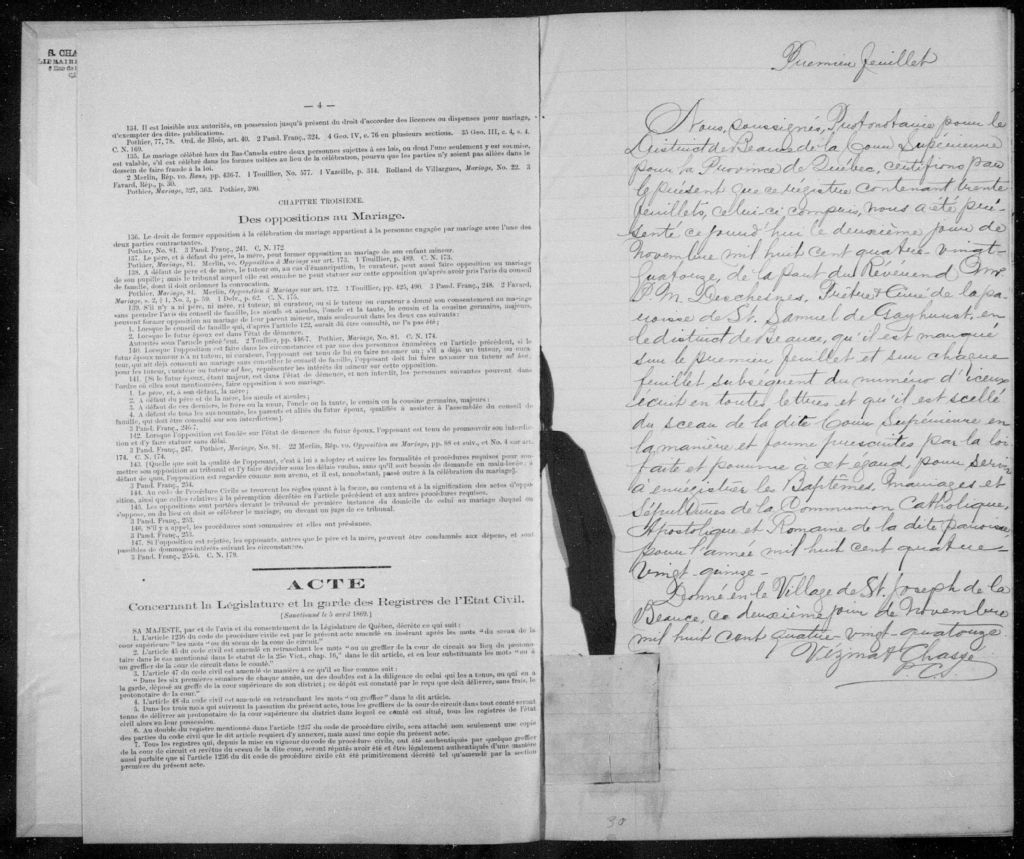 S. CHA
LIBRAIRE
— 4 —
134. Il est loisible aux autorités, en possession jusqu'à présent du droit d'accorder des licences ou dispenses pour mariage,
d'exempter des dites publications.
Pothier, 77, 78. Ord. de Blois, art. 40. 2 Pand. Franç., 324. 4 Geo. IV, c. 76 en plusieurs sections. 35 Geo. III, c. 4, s. 4.
C. N. 169.
135. Le mariage célébré hors du Bas-Canada entre deux personnes sujettes à ses lois, ou dont l'une seulement y est soumise,
est valable, s'il est célébré dans les formes usitées au lieu de la célébration, pourvu que les parties n'y soient pas allées dans le
dessein de faire fraude à la loi.
2 Merlin, Rép. vo. Bans, pp. 436-7. 1 Touillier, No. 577. 1 Vazeille, p. 314. Rolland de Villargues, Mariage, No. 22. 3
Favard, Rép., p. 50.
Pothier, Mariage, 327, 363. Pothier, 390.
CHAPITRE TROISIEME.
Des oppositions au Mariage.
136. Le droit de former opposition à la célébration du mariage appartient à la personne engagée par mariage avec l'une des
deux parties contractantes.
Pothier, No. 81. 3 Pand. Franç., 241. C. N. 172.
137. Le père, et à défaut du père, la mère, peut former opposition au mariage de son enfant mineur.
Pothier, Mariage, 81. Merlin, vo. Opposition à Mariage sur art. 173. 1 Touillier, p. 489. C. N. 173.
138. A défaut de père et de mère, le tuteur ou, au cas d'émancipation, le curateur, peut aussi faire opposition au mariage
de son pupille; mais le tribunal auquel elle est soumise ne peut statuer sur cette opposition qu'après avoir pris l'avis du conseil
de famille, dont il doit ordonner la convocation.
Pothier, Mariage, 81. Merlin, Opposition à Mariage sur art. 172. 1 Touillier, pp. 425, 490. 3 Pand. Franç., 248. 2 Favard,
Mariage, s. 2, § 1, No. 3, p. 59. 1 Delv., p. 62. C. N. 175.
139. S'il n'y a ni père, ni mère, ni tuteur, ni curateur, ou si le tuteur ou curateur a donné son consentement au mariage
sans prendre l'avis du conseil de famille, les aïeuls et aïeules, l'oncle et la tante, le cousin et la cousine germains, majeurs,
peuvent former opposition au mariage de leur parent mineur, mais seulement dans les deux cas suivants:
1. Lorsque le conseil de famille qui, d'après l'article 122, aurait dû être consulté, ne l'a pas été;
2. Lorsque le futur époux est dans l'état de démence.
Autorités sous l'article précé'ent. 2 Touillier, pp. 446-7. Pothier, Mariage, No. 81. C. N. 174.
140. Lorsque l'opposition est faite dans les circonstances et par une des personnes énumérées en l'article précédent, si le
futur époux mineur n'a ni tuteur, ni curateur, l'opposant est tenu de lui en faire nommer un; s'il a déjà un tuteur, ou curateur,
qui ait déjà consenti au mariage sans consulter le conseil de famille, l'opposant doit lui faire nommer un tuteur ad hoc,
pour les tuteur, curateur ou tuteur ad hoc, représenter les intérêts du mineur sur cette opposition.
141. [Si le futur époux, étant majeur, est dans l'état de démence, et non interdit, les personnes suivantes peuvent dans
l'ordre où elles sont mentionnées, faire opposition à son mariage.
1. Le père, et, à son défaut, la mère;
2. A défaut du père et de la mère, les aïeuls et aïeules;
3. A défaut de ces derniers, le frère ou la sœur, l'oncle ou la tante, le cousin ou la cousine germains, majeurs;
4. A défaut de tous les sus-nommés, les parents et alliés du futur époux, qualifiés à assister à l'assemblée du conseil de
famille, qui doit être consulté sur son interdiction].
3 Pand. Franç., 246-7.
142. Lorsque l'opposition est fondée sur l'état de démence du futur époux, l'opposant est tenu de promouvoir son interdiction
et d'y faire statuer sans délai.
3 Pand. Franç., 247. Pothier, Mariage, No. 81. 22 Merlin, Rép. vo. Opposition au Mariage, pp. 88 et suiv., et No. 4 sur art.
174. C. N. 174.
143. [Quelle que soit la qualité de l'opposant, c'est à lui à adopter et suivre les formalités et procédures requises pour soumettre
son opposition au tribunal et l'y faire décider sous les délais voulus, sans qu'il soit besoin de demande en main-levée; à
défaut de quoi, l'opposition est regardée comme non avenu, et il est, nonobstant, passé outre à la célébration du mariage].
3 Pand. Franç., 254.
144. Au code de Procédure Civile se trouvent les règles quant à la forme, au contenu et à la signification des actes d'opposition,
ainsi que celles relatives à la péremption décrétée en l'article précédent et aux autres procédures requises.
145. Les oppositions sont portées devant le tribunal de première instance du domicile de celui au mariage duquel on
s'oppose, ou du lieu où doit se célébrer le mariage, ou devant un juge de ce tribunal.
3 Pand. Franç., 253.
146. S'il y a appel, les procédures sont sommaires et elles ont préséance.
3 Pand. Franç., 255.
147. Si l'opposition est rejetée, les opposants, autres que le père et la mère, peuvent être condamnés aux dépens, et sont
passibles de dommages-intérêts suivant les circonstances.
3 Pand. Franç., 255-6. C. N. 179.
ACTE
Concernant la Législature et la garde des Registres de l'Etat Civil.
[Sanctionné le 5 avril 1869.]
SA MAJESTE, par et de l'avis et du consentement de la Législature de Québec, décrète ce qui suit:
1. L'article 1236 du code de procédure civile est par le présent acte amendé en insérant après les mots "du sceau de la
cour supérieure" les mots "ou du sceau de la cour de circuit."
2. L'article 45 du code civil est amendé en retranchant les mots "ou au greffier de la cour de circuit au lieu du protonotaire
dans le cas mentionné dans le statut de la 25e Vict., chap. 16," dans le dit article, et en leur substituant les mots "ou à
un greffier de la cour de circuit dans le comté."
3. L'article 47 du code civil est amendé de manière à ce qu'il se lise comme suit:
"Dans les six premières semaines de chaque année, un des doubles est à la diligence de celui qui les a tenus, ou qui en a
la garde, déposé au greffe de la cour supérieure de son district; ce dépôt est constaté par le reçu que doit délivrer, sans frais, le
protonotaire de la cour."
4. L'article 48 du code civil est amendé en retranchant les mots "ou greffier" dans le dit article.
5. Dans les trois mois qui suivront la passation du présent acte, tous les greffiers de la cour de circuit dans tout comté seront
tenus de délivrer au protonotaire de la cour supérieure du district dans lequel ce comté est situé, tous les registres de l'état
civil alors en leur possession.
6. Au double du registre mentionné dans l'article 1237 du code de procédure civile, sera attaché non seulement une copie
des parties du code civil que le dit article requiert d'y annexer, mais aussi une copie du présent acte.
7. Tous les registres qui, depuis la mise en vigueur du code de procédure civile, ont été authentiqués par quelque greffier
de la cour de circuit et revêtus du sceau de la dite cour, seront réputés avoir été et être légalement authentiqués d'une manière
aussi parfaite que si l'article 1236 du dit code de procédure civile eût été primitivement décrété tel qu'amendé par la section
première du présent acte.
Premier feuillet
Nous, soussignés, Protonotaire pour le
District de Beauce de la Cour Supérieure
pour la Province de Québec, certifions par
le présent que ce registre contenant trente
feuillets, celui-ci compris, nous a été pré-
senté ce jourd'hui le deuxième jour de
Novembre mil huit cent quatre-vingt-
quatorze, de la part du Révérend Mr
P. M. Deschesnes, Prêtre & Curé de la pa-
roisse de St. Samuel de Gayhurst, en
le district de Beauce, qu'il est marqué
sur le premier feuillet et sur chaque
feuillet subséquent du numéro d'iceux
écrit en toutes lettres et qu'il est scellé
du sceau de la dite Cour Supérieure en
la manière et forme prescrites par la loi
faite et pourvue à cet égard, pour servir
à enregistrer les Baptêmes, Mariages et
Sépultures de la Communion Catholique,
Apostolique et Romaine de la dite paroisse,
pour l'année mil huit cent quatre-
vingt-quinze-
Donné en le Village de St. Joseph de la
Beauce, ce deuxième jour de Novembre
mil huit cent quatre-vingt-quatorze
Vézina & Chassé
P. C. S.
30